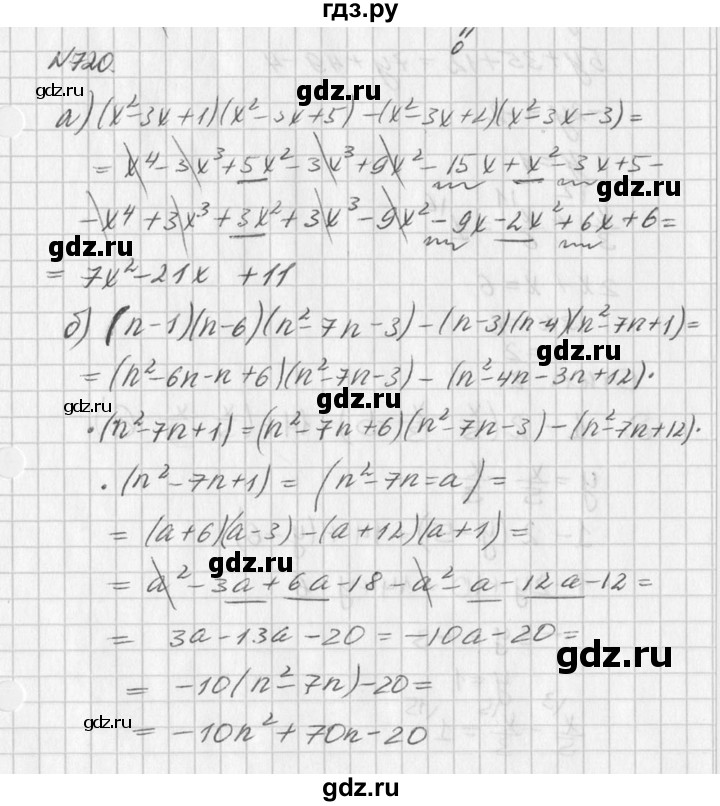 гдз.ру
N720.
gdz.ru
gdz.ru
а) (x²-3x+1)(x²-3x+5)-(x²-3x+2)(x²-3x-3)=
= x⁴-3x³+5x²-3x³+9x²-15x+x²-3x+5-
gdz.ru
-x⁴+3x³+3x²+3x³-9x²-9x-2x²+6x+6=
gdz.ru
= 7x²-21x +11
б) (n-1)(n-6)(n²-7n-3)-(n-3)(n-4)(n²-7n+1)=
gdz.ru
= (n²-6n-n+6)(n²-7n-3)-(n²-4n-3n+12)·
gdz.ru
gdz.ru
·(n²-7n+1)=(n²-7n+6)(n²-7n-3)-(n²-7n+12)·
·(n²-7n+1)= (n²-7n=a)=
= (a+6)(a-3)-(a+12)(a+1)=
gdz.ru
= a²-3a+6a-18-a²-a-12a-12=
= 3a-13a-20=-10a-20=
gdz.ru
= -10(n²-7n)-20=
gdz.ru
= -10n²+70n-20
gdz.ru